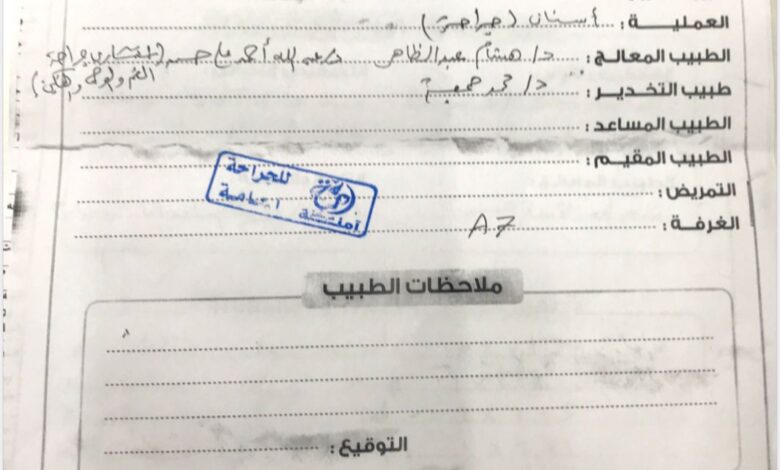 العملية : أسنان (جراحة)
الطبيب المعالج : د/ هشام عبد الظاهر د. عبد الله أحمد حسم (استشاري جراحة
الفم والوجه والفكين)
طبيب التخدير : د/ محمد
الطبيب المساعد :
الطبيب المقيم :
التمريض :
الغرفة : A7
للجراحة
آمنة
ملاحظات الطبيب
التوقيع :